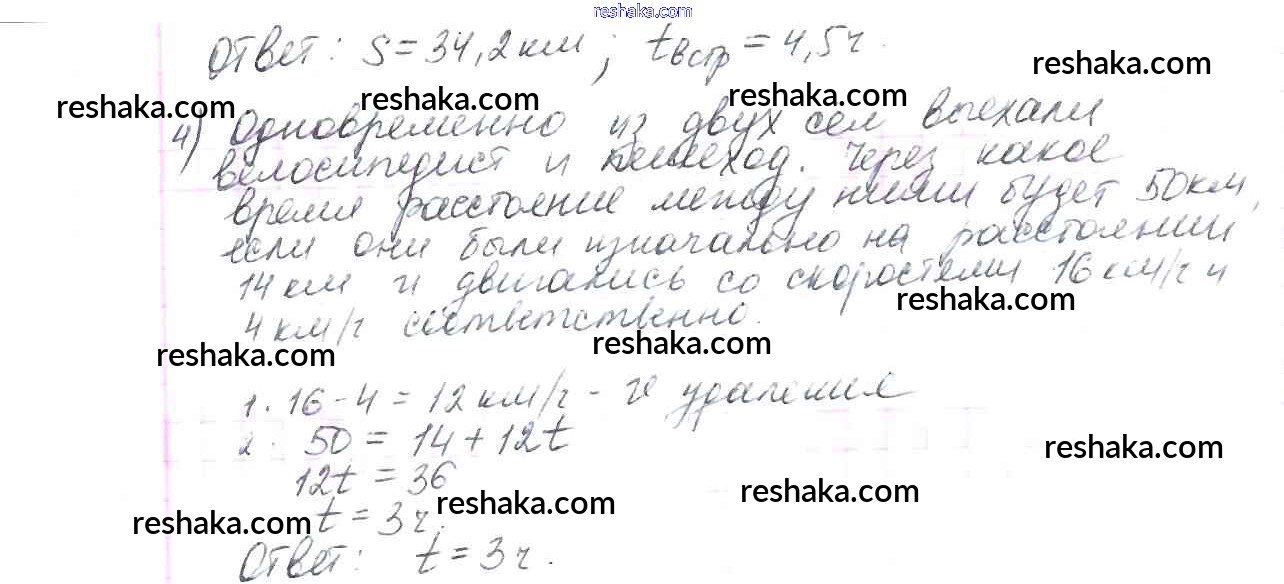 reshaka.com
Ответ: S = 34,2 км ; tвстр = 4,5 ч.
reshaka.com
reshaka.com reshaka.com reshaka.com
4) Одновременно из двух сел выехали
велосипедист и пешеход. Через какое
время расстояние между ними будет 50 км,
если они были изначально на расстоянии
14 км и двигались со скоростями 16 км/ч и
reshaka.com
4 км/ч соответственно.
reshaka.com reshaka.com
1. 16 - 4 = 12 км/ч - υ удаления
2. 50 = 14 + 12t
reshaka.com
12t = 36
reshaka.com reshaka.com
t = 3 ч.
reshaka.com
Ответ: t = 3 ч.